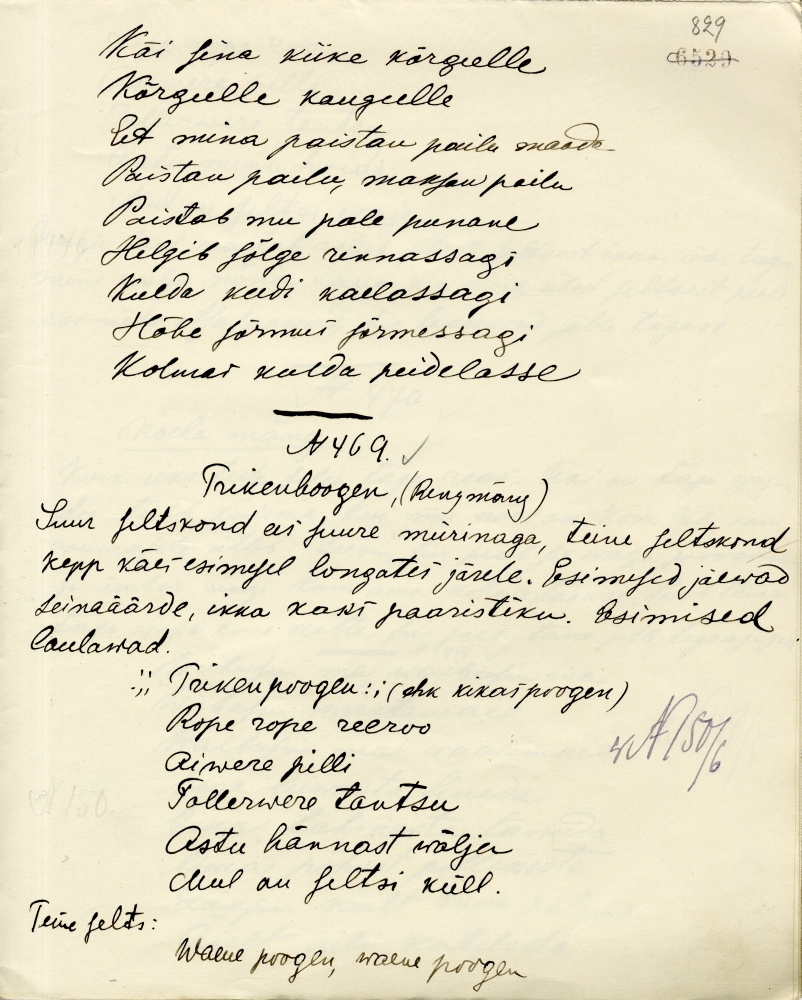 829
6529
Käi sina kiike kõrguelle
Kõrguelle kauguelle
Et mina paistan pailu maade
Paistan pailu, maksan pailu
Paistab mu pale punane
Helgib sõlge rinnassagi
Kulda keedi kaelassagi
Hõbe sõrmus sõrmessagi
Kolmat kulda peidelasse
N 469.
Trikenboogen, (Ringmäng)
Suur seltskond ees suure mürinaga, teine seltskond
kepp käes esimesel longates järele. Esimesed jäewad
seinaäärde, ikka kaks paaristiku. Esimised
laulawad.
:,: Trikenpoogen :,: (ehk kikaspoogen)
Rope rope reeroo
Aiwere pilli
Tallerwere tantsu
Astu hännast wälja
Mul on seltsi küll.
Teine selts:
Waene poogen, waene poogen